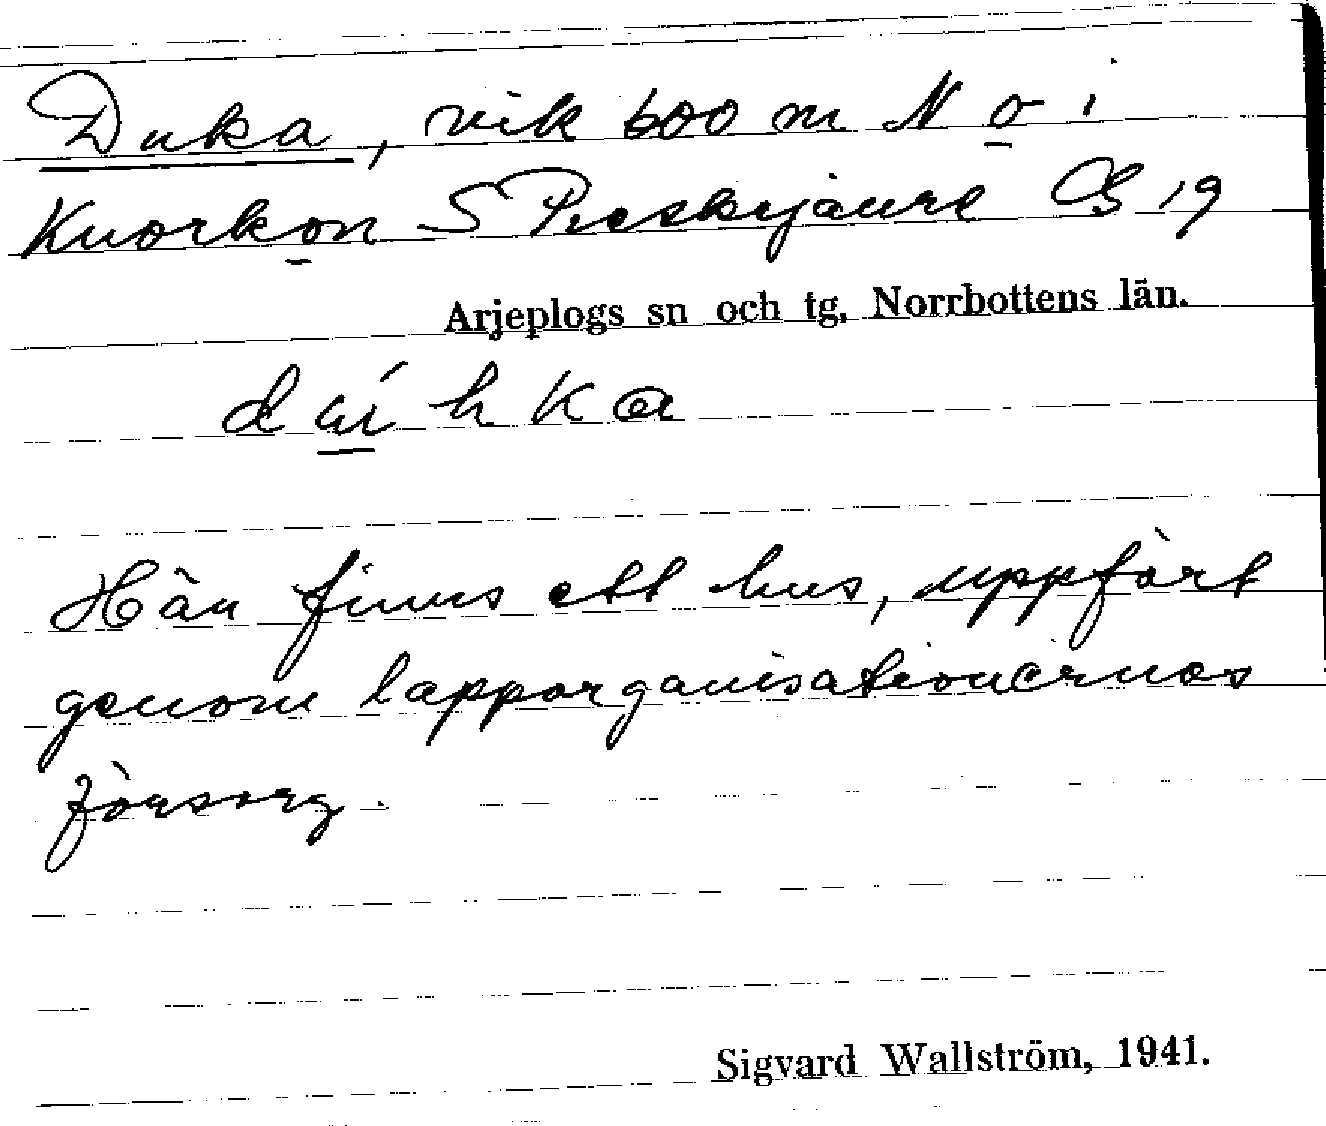 Duka, vik 600 m N o i
Kuorkon S Pieskejaure C3 19
Arjeplogs sn och tg. Norrbottens län.
Här finns ett hus, uppfört
genom lapporganisationernas
försorg.
Sigvard Wallström, 1941.